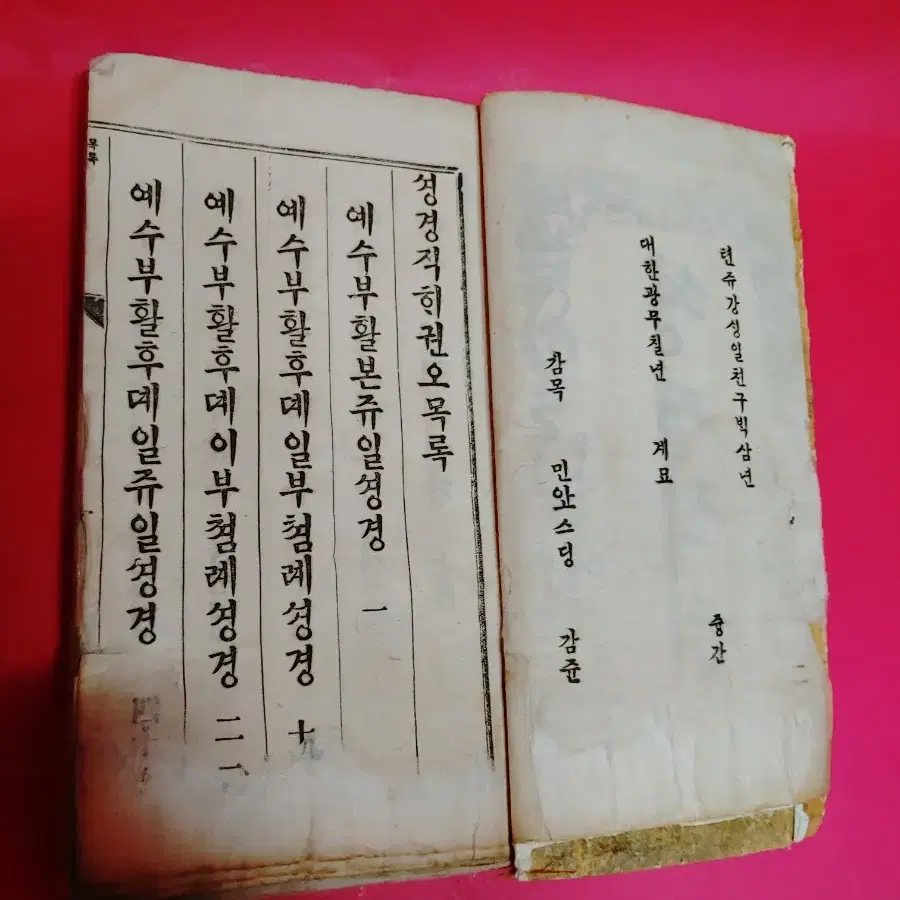 텬쥬강싱일천구빅삼년 즁간
대한광무칠년 계묘
감목 민안스딩 감쥰
셩경직히권오목록
예수부활본쥬일셩경 一
예수부활후뎨일부쳠례셩경 十九
예수부활후뎨이부쳠례셩경 二一
예수부활후뎨일쥬일셩경
목록